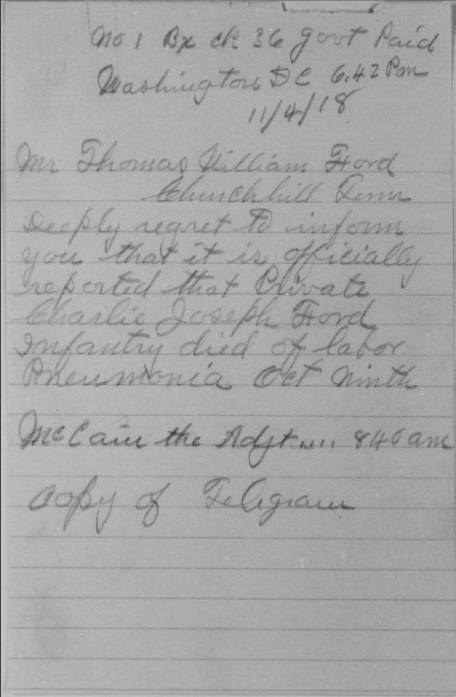 No 1 Bx ck 36 govt Paid
Washington DC 6.42 Pm
11/4/18
Mr Thomas William Ford
Churchhill Tenn
Deeply regret to inform
you that it is officially
reported that Private
Charlie Joseph Ford
Infantry died of labor
Pneumonia Oct Ninth
McCain the Adjt 840 am
Copy of Telegram